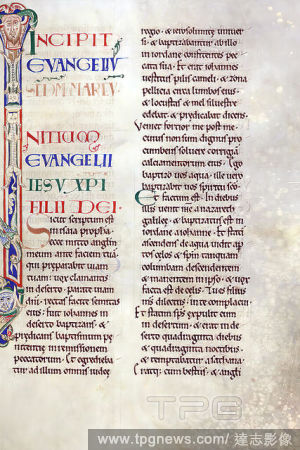 INCIPIT
EVANGELIV
SEDM MARCV
INITIUM
EVANGELII
IESV XPI
FILII DEI.
Sicut scriptum est
in isaia propha
ecce mitto anglm
meum ante faciem tuam
qui preparabit uiam
tuam uox clamantis
in deserto. parate uiam
dni. rectas facite semitas
eius. fuit iohannes in
deserto baptizans. &
predicans baptismum pe
nitentie in remissionem
peccatorum. Et egrediebat
ad illum omnis iudee
regio. & ierosolimite uniuer
si. & baptizabantur ab illo
in iordane confitentes pec
cata sua. Et erat iohannes
uestitus pilis cameli. & zona
pellicea circa lumbos eius.
& locustas & mel siluestre
edebat. & predicabat dicens.
Veniet fortior me post me.
cuius non sum dignus pro
cumbens soluere corrigia
calciamentorum eius. Ego
baptizo uos aqua. ille uero
baptizabit uos spiritu sco.
Et factum est. In diebus
illis uenit ihc a nazareth
galilee. & baptizatus est in
iordane a iohanne. Et statim
ascendens de aqua uidit aper
tos celos & spm tanquam
columbam descendentem
& manentem in ipso. & uox
facta est de celis. Tu es filius
ms dilectus. in te complacui.
Et statim sps expulit eum
in desertum. & erat in de
serto quadraginta diebus
& quadraginta noctibus.
& temptabatur a sathana.
Eratq; cum bestiis. & angli
TPG
www.tpgnews.com/達志影像